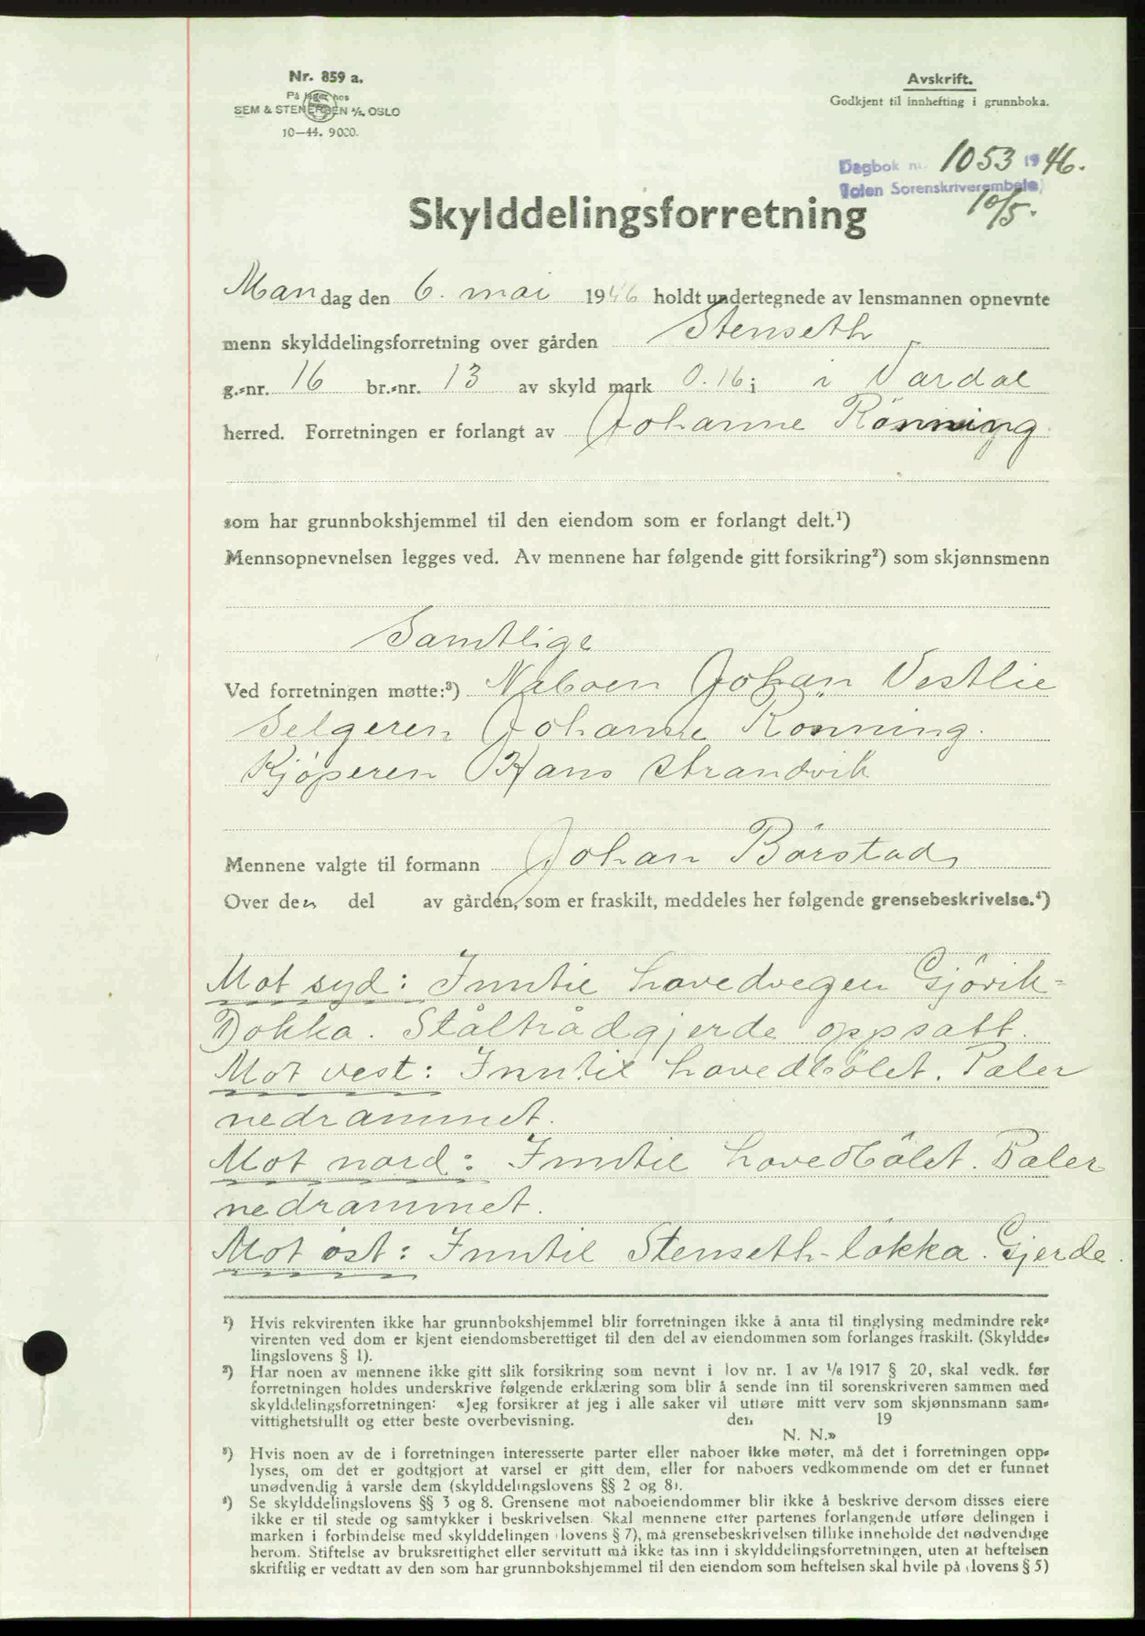 Nr. 859 a.
På lager hos
SEM & STENERSEN A/S, OSLO
10—44. 9000.
Avskrift.
Godkjent til innhefting i grunnboka.
Dagbok nr. 1053 1946.
Toten Sorenskriverembete
10/5.
Skylddelingsforretning
Mandag den 6. mai 1946 holdt undertegnede av lensmannen opnevnte
menn skylddelingsforretning over gården Stenseth
g.-nr. 16 br.-nr. 13 av skyld mark 0.16 i i Vardal
herred. Forretningen er forlangt av Johanne Rönning
som har grunnbokshjemmel til den eiendom som er forlangt delt.¹)
Mennsopnevnelsen legges ved. Av mennene har følgende gitt forsikring²) som skjønnsmenn
Samtlige
Ved forretningen møtte:³) Naboen Johan Vestlie
Selgeren Johanne Rönning.
Kjöperen Hans Strandvik
Mennene valgte til formann Johan Börstad
Over den del av gården, som er fraskilt, meddeles her følgende grensebeskrivelse.⁴)
Mot syd: Inntil hovedvegen Gjövik-
Dokka. Ståltrådgjerde oppsatt.
Mot vest: Inntil hovedbölet. Pæler
nedrammet.
Mot nord: Inntil hovedbölet. Pæler
nedrammet.
Mot öst: Inntil Stenseth-lökka. Gjerde.
¹) Hvis rekvirenten ikke har grunnbokshjemmel blir forretningen ikke å anta til tinglysing medmindre rek-
virenten ved dom er kjent eiendomsberettiget til den del av eiendommen som forlanges fraskilt. (Skyldde-
lingslovens § 1).
²) Har noen av mennene ikke gitt slik forsikring som nevnt i lov nr. 1 av 1/6 1917 § 20, skal vedk. før
forretningen holdes underskrive følgende erklæring som blir å sende inn til sorenskriveren sammen med
skylddelingsforretningen: «Jeg forsikrer at jeg i alle saker vil utføre mitt verv som skjønnsmann sam-
vittighetsfullt og etter beste overbevisning. den 19
N. N.»
³) Hvis noen av de i forretningen interesserte parter eller naboer ikke møter, må det i forretningen opp-
lyses, om det er godtgjort at varsel er gitt dem, eller for naboers vedkommende om det er funnet
unødvendig å varsle dem (skylddelingslovens §§ 2 og 8).
⁴) Se skylddelingslovens §§ 3 og 8. Grensene mot naboeiendommer blir ikke å beskrive dersom disses eiere
ikke er til stede og samtykker i beskrivelsen. Skal mennene etter partenes forlangende utføre delingen i
marken i forbindelse med skylddelingen (lovens § 7), må grensebeskrivelsen tillike inneholde det nødvendige
herom. Stiftelse av bruksrettighet eller servitutt må ikke tas inn i skylddelingsforretningen, uten at heftelsen
skriftlig er vedtatt av den som har grunnbokshjemmel til den eiendom som heftelsen skal hvile på (lovens § 5)